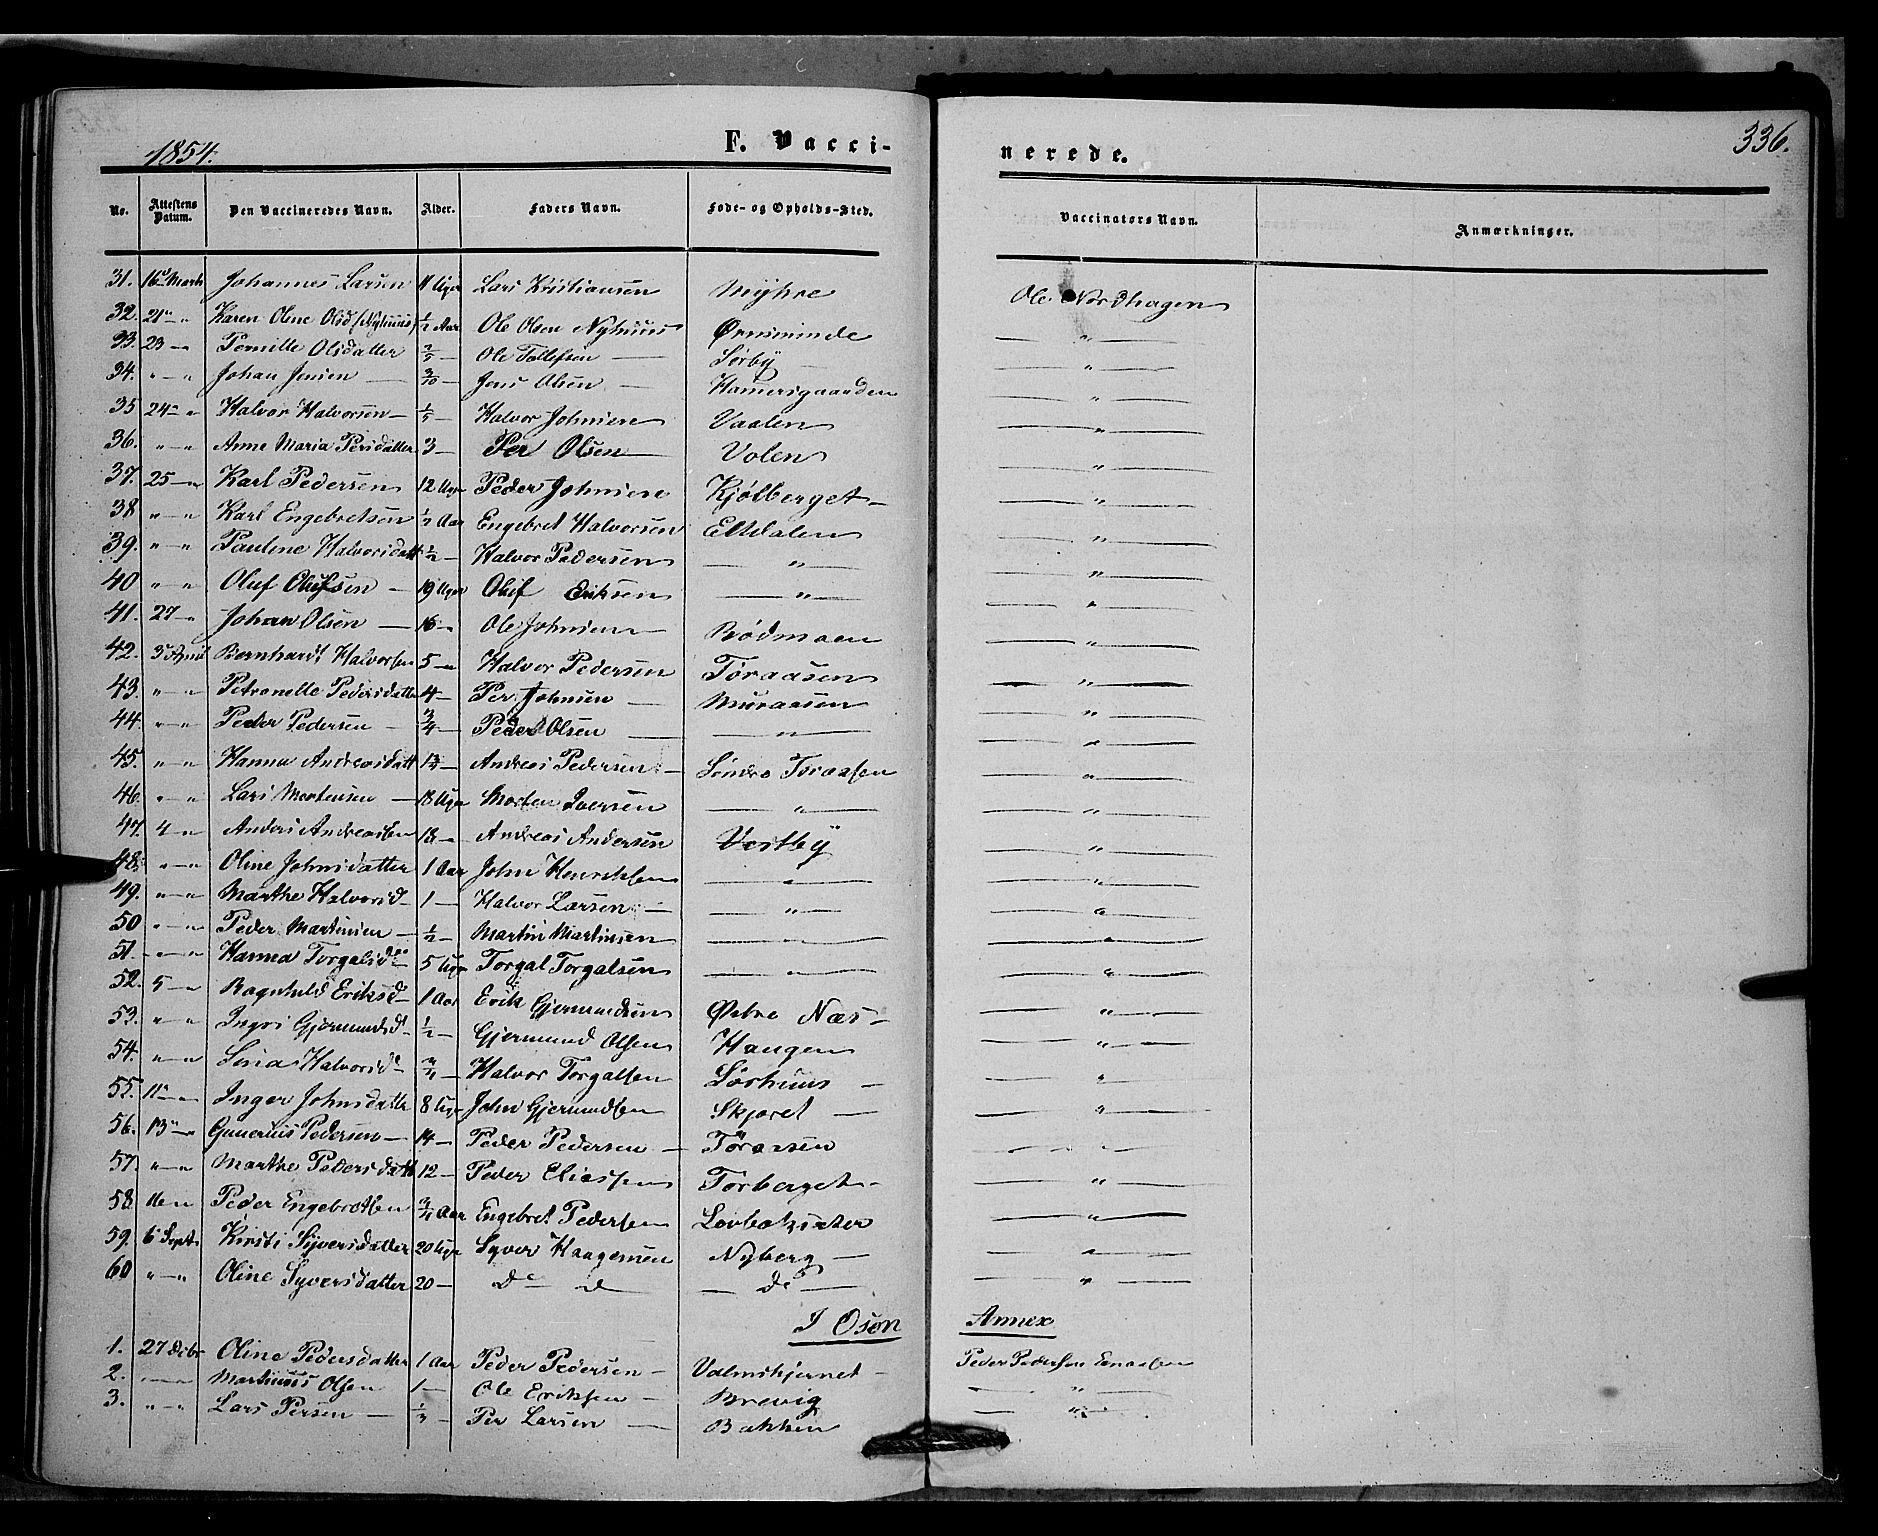 1854. F. Vacci- nerede. 336.
No. Attestens Datum. Den Vaccineredes Navn. Alder. Faders Navn. Føde- og Opholds-Sted. Vaccinators Navn. Anmærkninger.
31. 16 Marts Johannes Larsen 11 Uger Lars Kristiansen Myhre Ole Nordhagen
32. 21 " Karen Oline Olsd. (Nyhuus) 1/2 Aar Ole Olsen Nyhuus Ørnsminde "
33. 23 — " Pernille Olsdatter — Ole Tollefsen — Sørby "
34. " — " Johan Jensen — 3/10 — Jens Olsen — Hamersgaarden "
35 24 — " Halvor Halvorsen — — Halvor Johnsen Vaalen "
36. " — " Anne Maria Persdatter 3 — Per Olsen — Volen "
37. 25 — " Karl Pedersen 12 Uger Peder Johnsen Kjølberget — "
38 " — " Karl Engebretsen 1/2 Aar Engebret Halvorsen Eltdalen "
39. " — " Pauline Halvorsdatt 1/2 — Halvor Pedersen — " — "
40 " — " Oluf Olufsen — 19 Uger Oluf Eriksen — " — "
41. 27 — " Johan Olsen — 16 — Ole Johnsen — Rødmoen "
42. 3 April Bernhardt Halvorsen 5 — " Halvor Pedersen Toraasen "
43. " — " Petronelle Pedersdatter 4 — Per Johnsen — Muraasen "
44. " — " Peder Pedersen — 3/4 — Peder Olsen — " — "
45. " — " Hanna Andreasdatt — Andreas Pedersen — Søndre Toraasen "
46. " — " Lars Mortensen — 18 Uger Morten Iversen — " — "
47. 4 — " Anders Andreassen 18 — Andreas Andersen Vestby "
48. " — " Oline Johnsdatter 1 Aar John Henriksen — " — "
49. " — " Marthe Halvorsd — 1 — Halvor Larsen — — " — "
50 " — " Peder Martinsen — 1/2 — Martin Martinsen — " — "
51. " — " Hanna Torgalsd 5 Uger Torgal Torgalsen — " — "
52. 5 — " Ragnhild Eriksd — 1 Aar Erik Gjermundsen Østre Næs — "
53. " — " Ingri Gjermundsd 1/2 — Gjermund Olsen Haugen "
54. " — " Sina Halvorsd 3/4 — Halvor Torgalsen Sørhuus — "
55. 11 — " Inger Johnsdatter 8 Uger John Gjermundsen Skjøret — "
56. 13 — " Gunerius Pedersen — 14 — Peder Pedersen — Toraasen "
57. " — " Marthe Pedersdatt 12 — Peder Eliassen Torberget — "
58. Peder Engebretsen 3/4 Aar Engebret Pedersen "
59. 6 Septr Kirsti Syversdatter 20 Uger Syver Haagensen Nyberg — "
60 " — " Oline Syversdatter 20 — De d — de — "
I Osen Annex
1. 27 Debr Oline Pedersdatter 1 Aar Peder Pedersen — Valmskjernet — Peder Pedersen
2. — " Martinus Olsen 1 — Ole Eriksen — Brevig "
3. " — " Lars Persen — 1/3 — Per Larsen — Bakken "